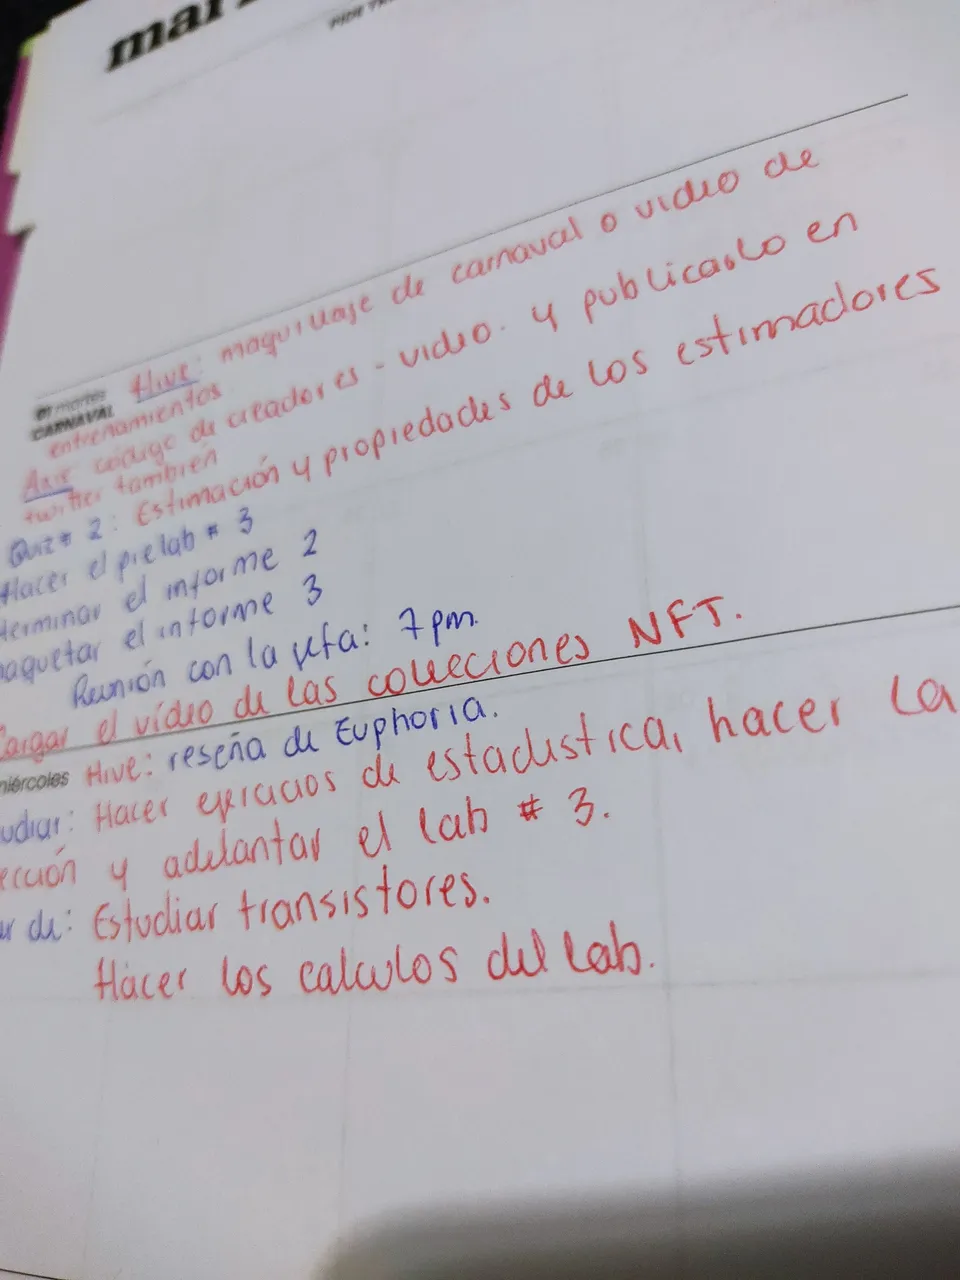 mar
Hive: maquillaje de carnaval o video de
01 martes
CARNAVAL
entrenamientos
Axie código de creadores - video. y publicarlo en
twitter también
Quiz # 2: Estimación y propiedades de los estimadores
Hacer el prelab # 3
terminar el informe 2
maquetar el informe 3
Reunión con la jefa: 7pm.
Cargar el vídeo de las colecciones NFT.
miércoles Hive: reseña de Euphoria.
udiar: Hacer ejercicios de estadistica, hacer la
ección y adelantar el lab # 3.
de: Estudiar transistores.
Hacer los calculos del lab.